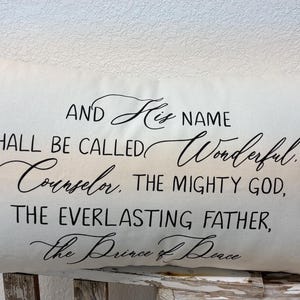 AND His NAME
HALL BE CALLED Wonderful,
Counselor, THE MIGHTY GOD,
THE EVERLASTING FATHER,
the Prince of Peace